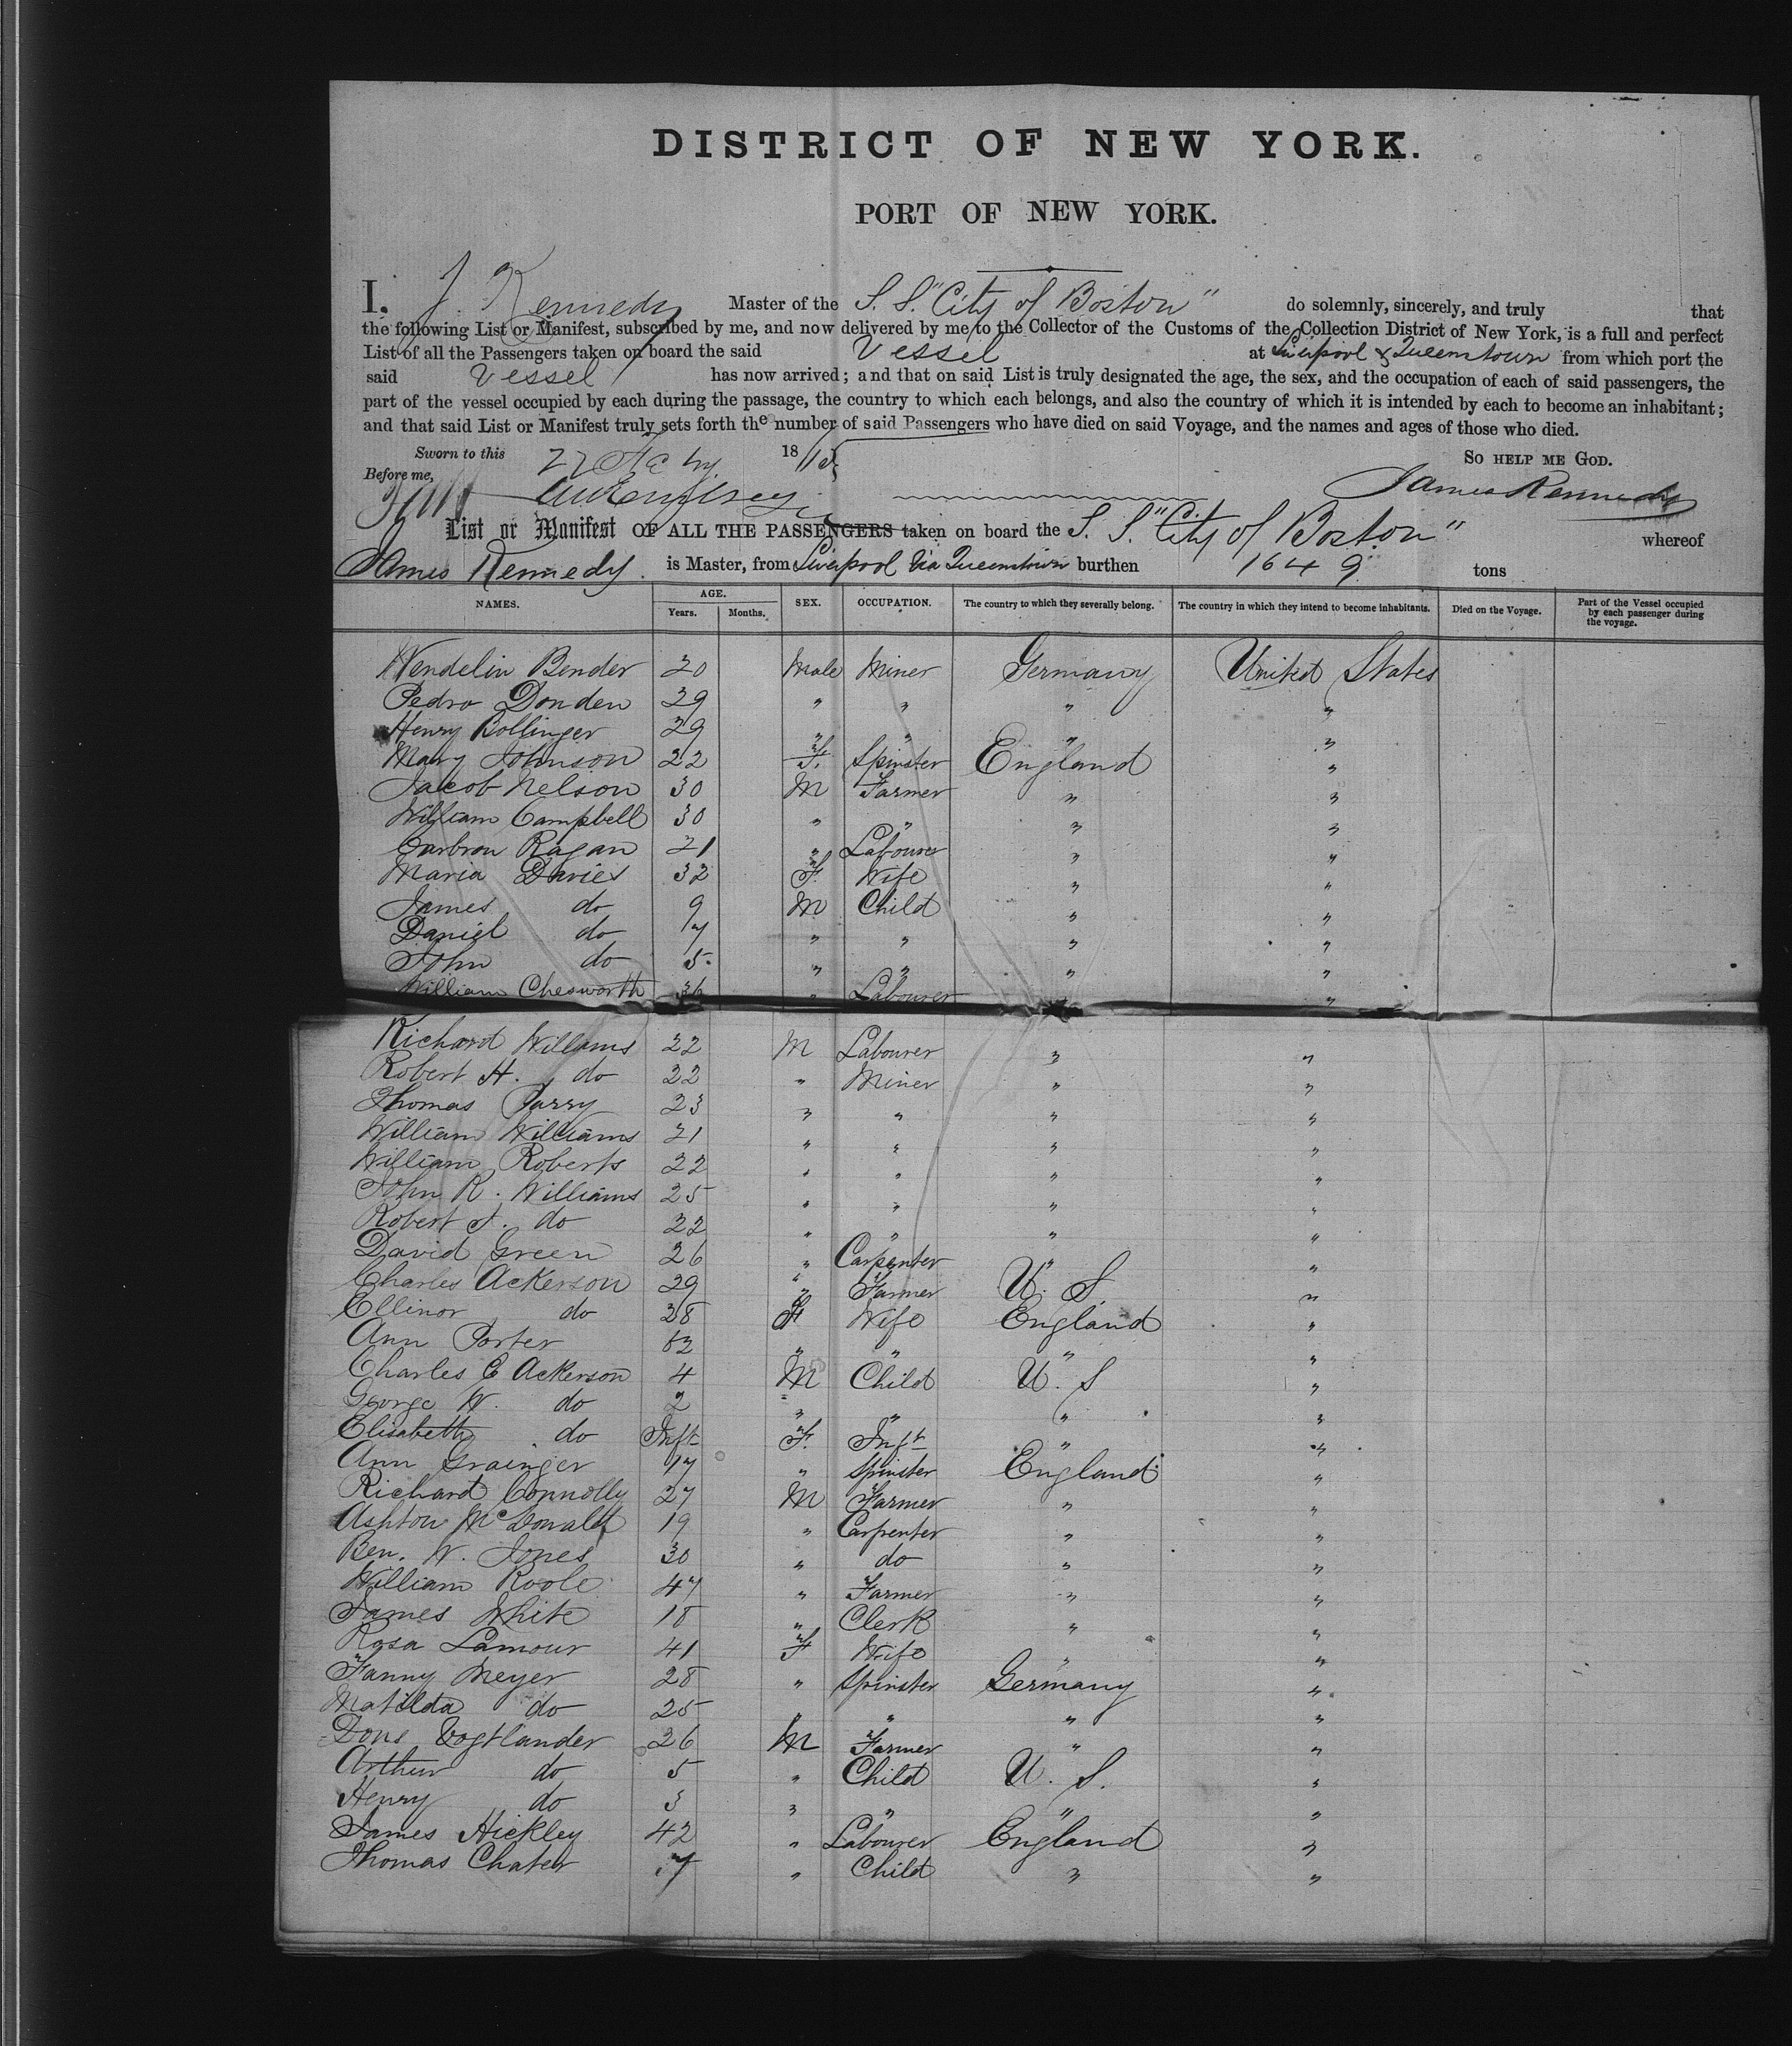 DISTRICT OF NEW YORK.
PORT OF NEW YORK.
I. J Kennedy Master of the S. S. "City of Boston" do solemnly, sincerely, and truly that
the following List or Manifest, subscribed by me, and now delivered by me to the Collector of the Customs of the Collection District of New York, is a full and perfect
List of all the Passengers taken on board the said Vessel at Liverpool & Queenstown from which port the
said Vessel has now arrived; and that on said List is truly designated the age, the sex, and the occupation of each of said passengers, the
part of the vessel occupied by each during the passage, the country to which each belongs, and also the country of which it is intended by each to become an inhabitant;
and that said List or Manifest truly sets forth the number of said Passengers who have died on said Voyage, and the names and ages of those who died.
Sworn to this 18 So HELP ME GOD.
Before me, James Kennedy
List or Manifest OF ALL THE PASSENGERS taken on board the S. S. "City of Boston" whereof
James Kennedy is Master, from Liverpool Via Queenstown burthen 1649 tons
NAMES. AGE. Years. Months. SEX. OCCUPATION. The country to which they severally belong. The country in which they intend to become inhabitants. Died on the Voyage. Part of the Vessel occupied by each passenger during the voyage.
Wendelin Bender 20 Male Miner Germany United States
Pedro Donden 29 " " " "
Henry Bollinger 29 " " " "
Mary Johnson 22 F. Spinster England "
Jacob Nelson 30 M Farmer " "
William Campbell 30 " " " "
Ragan 21 " Labourer " "
Maria Davies 32 F. Wife " "
James do 9 M Child " "
Daniel do 7 " " " "
John do 5 " " " "
William Chesworth 36 " Labourer "
Richard Williams 22 M Labourer " "
Robert H. do 22 " Miner " "
Thomas Parry 23 " " " "
William Williams 21 " " " "
William Roberts 22 " " " "
John R. Williams 25 " " " "
Robert J. do 22 " " " "
David Green 26 " Carpenter " "
Charles Ackerson 29 " Farmer U. S. "
Ellinor do 28 F Wife England "
Ann Porter 52 " " " "
Charles E Ackerson 4 M Child U. S "
George W. do 2 " " " "
Elisabeth do Inft F. Inft " "
Ann Grainger 17 " Spinster England "
Richard Connolly 27 M Farmer " "
Ashton McDonald 19 " Carpenter " "
Ben. W. Jones 30 " do " "
William Roole 47 " Farmer " "
James White 18 " Clerk " "
Rosa Lamour 41 F Wife " "
Fanny Meyer 28 " Spinster Germany "
Matilda do 25 " " " "
Vogtlander 36 M Farmer " "
Arthur do 5 " Child U. S. "
Henry do 3 " " " "
James Hickley 42 " Labourer England "
Thomas Chater 7 " Child " "